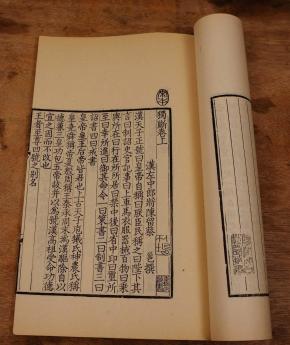 獨斷卷上
漢左中郎將陳留蔡邕撰
漢天子正號曰皇帝自稱曰朕臣民稱之曰陛下其
言曰制詔史官記事曰上車馬衣服器械百物曰乘
輿所在曰行在所所居曰禁中後曰省中印曰璽所
至曰幸所進曰御其命令一曰策書二曰制書三曰
詔書四曰戒書
皇帝皇王后帝皆君也上古天子庖犧氏神農氏稱
皇堯舜稱帝夏殷周稱王秦承周末為漢驅除自以
德兼三皇功包五帝故并以為號漢高祖受命功德
宜之因而不改也
王者至尊四號之別名